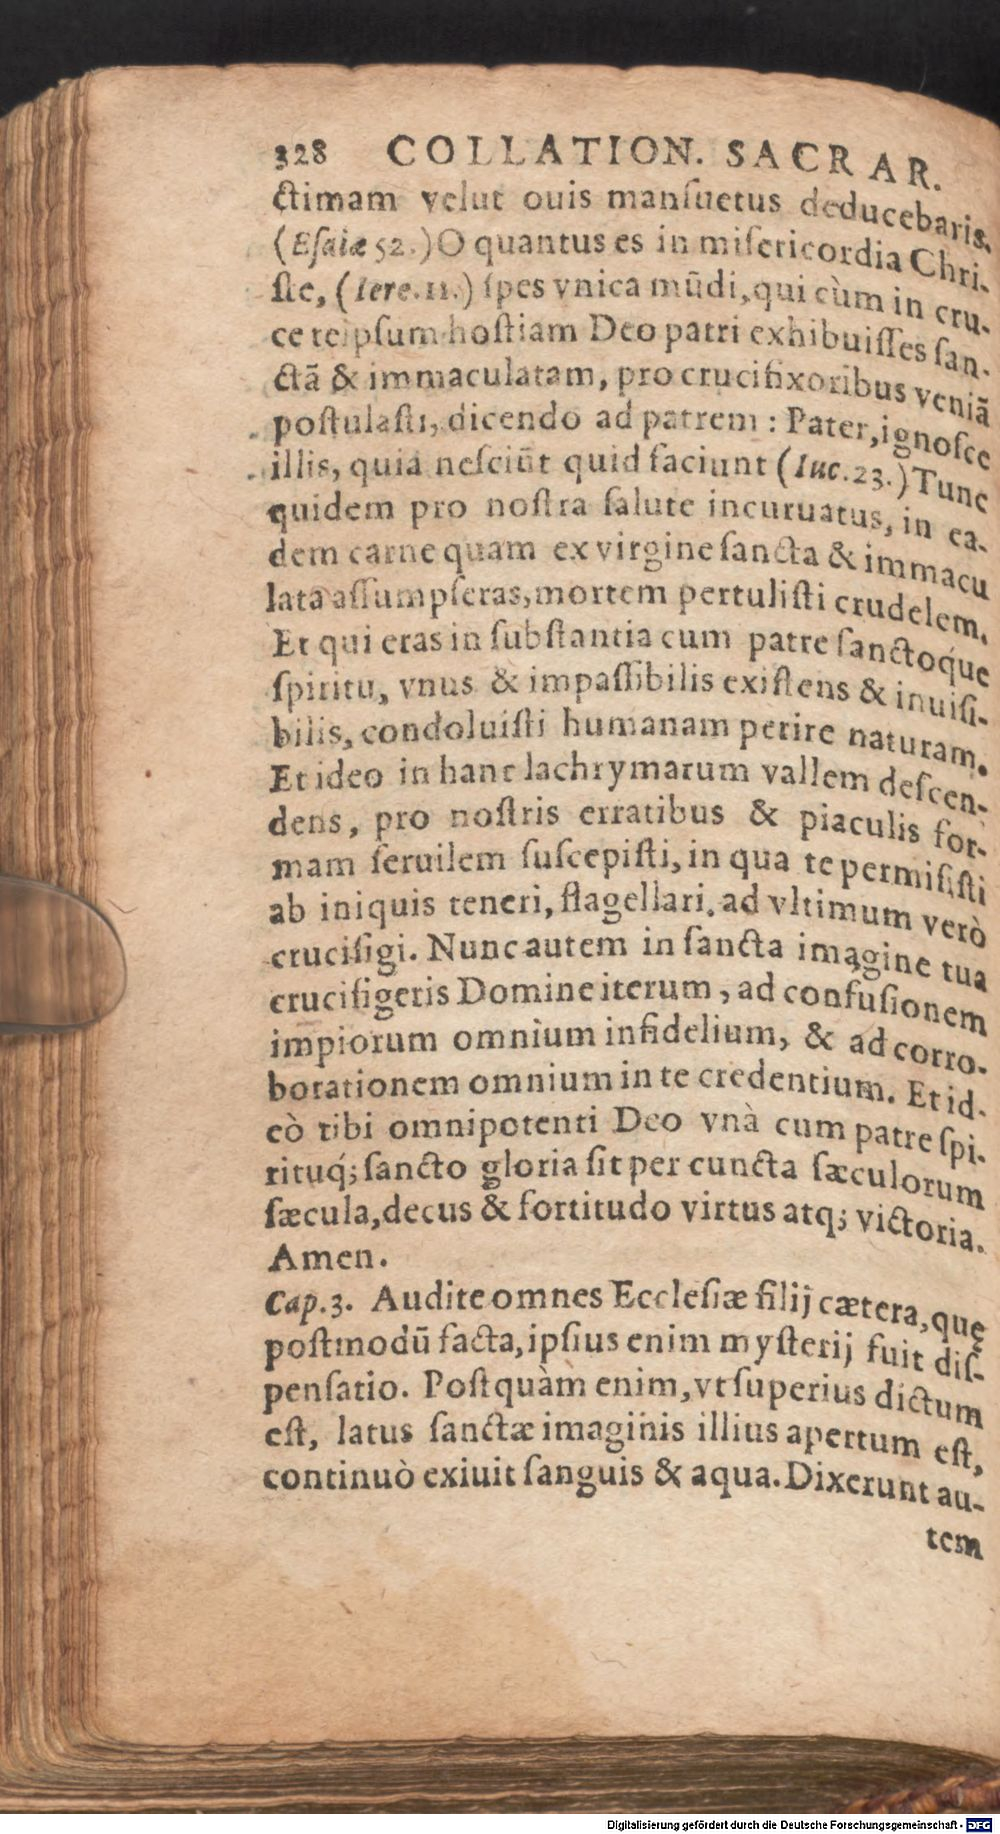 328 COLLATION. SACRAR.
ctimam velut ouis manſuetus deducebaris.
(Eſaiæ 52.) O quantus es in miſericordia Chri-
ſte, (Iere. 11.) ſpes vnica mūdi, qui cùm in cru-
ce teipſum hoſtiam Deo patri exhibuiſſes ſan-
ctā & immaculatam, pro crucifixoribus veniā
poſtulaſti, dicendo ad patrem: Pater, ignoſce
illis, quia neſciūt quid faciunt (Luc. 23.) Tunc
quidem pro noſtra ſalute incuruatus, in ea-
dem carne quam ex virgine ſancta & immacu
lata aſſumpſeras, mortem pertuliſti crudelem.
Et qui eras in ſubſtantia cum patre ſanctoq́ue
ſpiritu, vnus & impaſſibilis exiſtens & inuiſi-
bilis, condoluiſti humanam perire naturam.
Et ideo in hanc lachrymarum vallem deſcen-
dens, pro noſtris erratibus & piaculis for-
mam ſeruilem ſuſcepiſti, in qua te permiſiſti
ab iniquis teneri, flagellari, ad vltimum verò
crucifigi. Nunc autem in ſancta imagine tua
crucifigeris Domine iterum, ad confuſionem
impiorum omnium infidelium, & ad corro-
borationem omnium in te credentium. Et id-
eò tibi omnipotenti Deo vnà cum patre ſpi-
rituq́; ſancto gloria ſit per cuncta ſæculorum
ſæcula, decus & fortitudo virtus atq; victoria.
Amen.
Cap. 3. Audite omnes Eccleſiæ filij cætera, quę
poſtmodū facta, ipſius enim myſterij fuit diſ-
penſatio. Poſtquàm enim, vt ſuperius dictum
eſt, latus ſanctæ imaginis illius apertum eſt,
continuò exiuit ſanguis & aqua. Dixerunt au-
tem
Digitalisierung gefördert durch die Deutsche Forschungsgemeinschaft - DFG